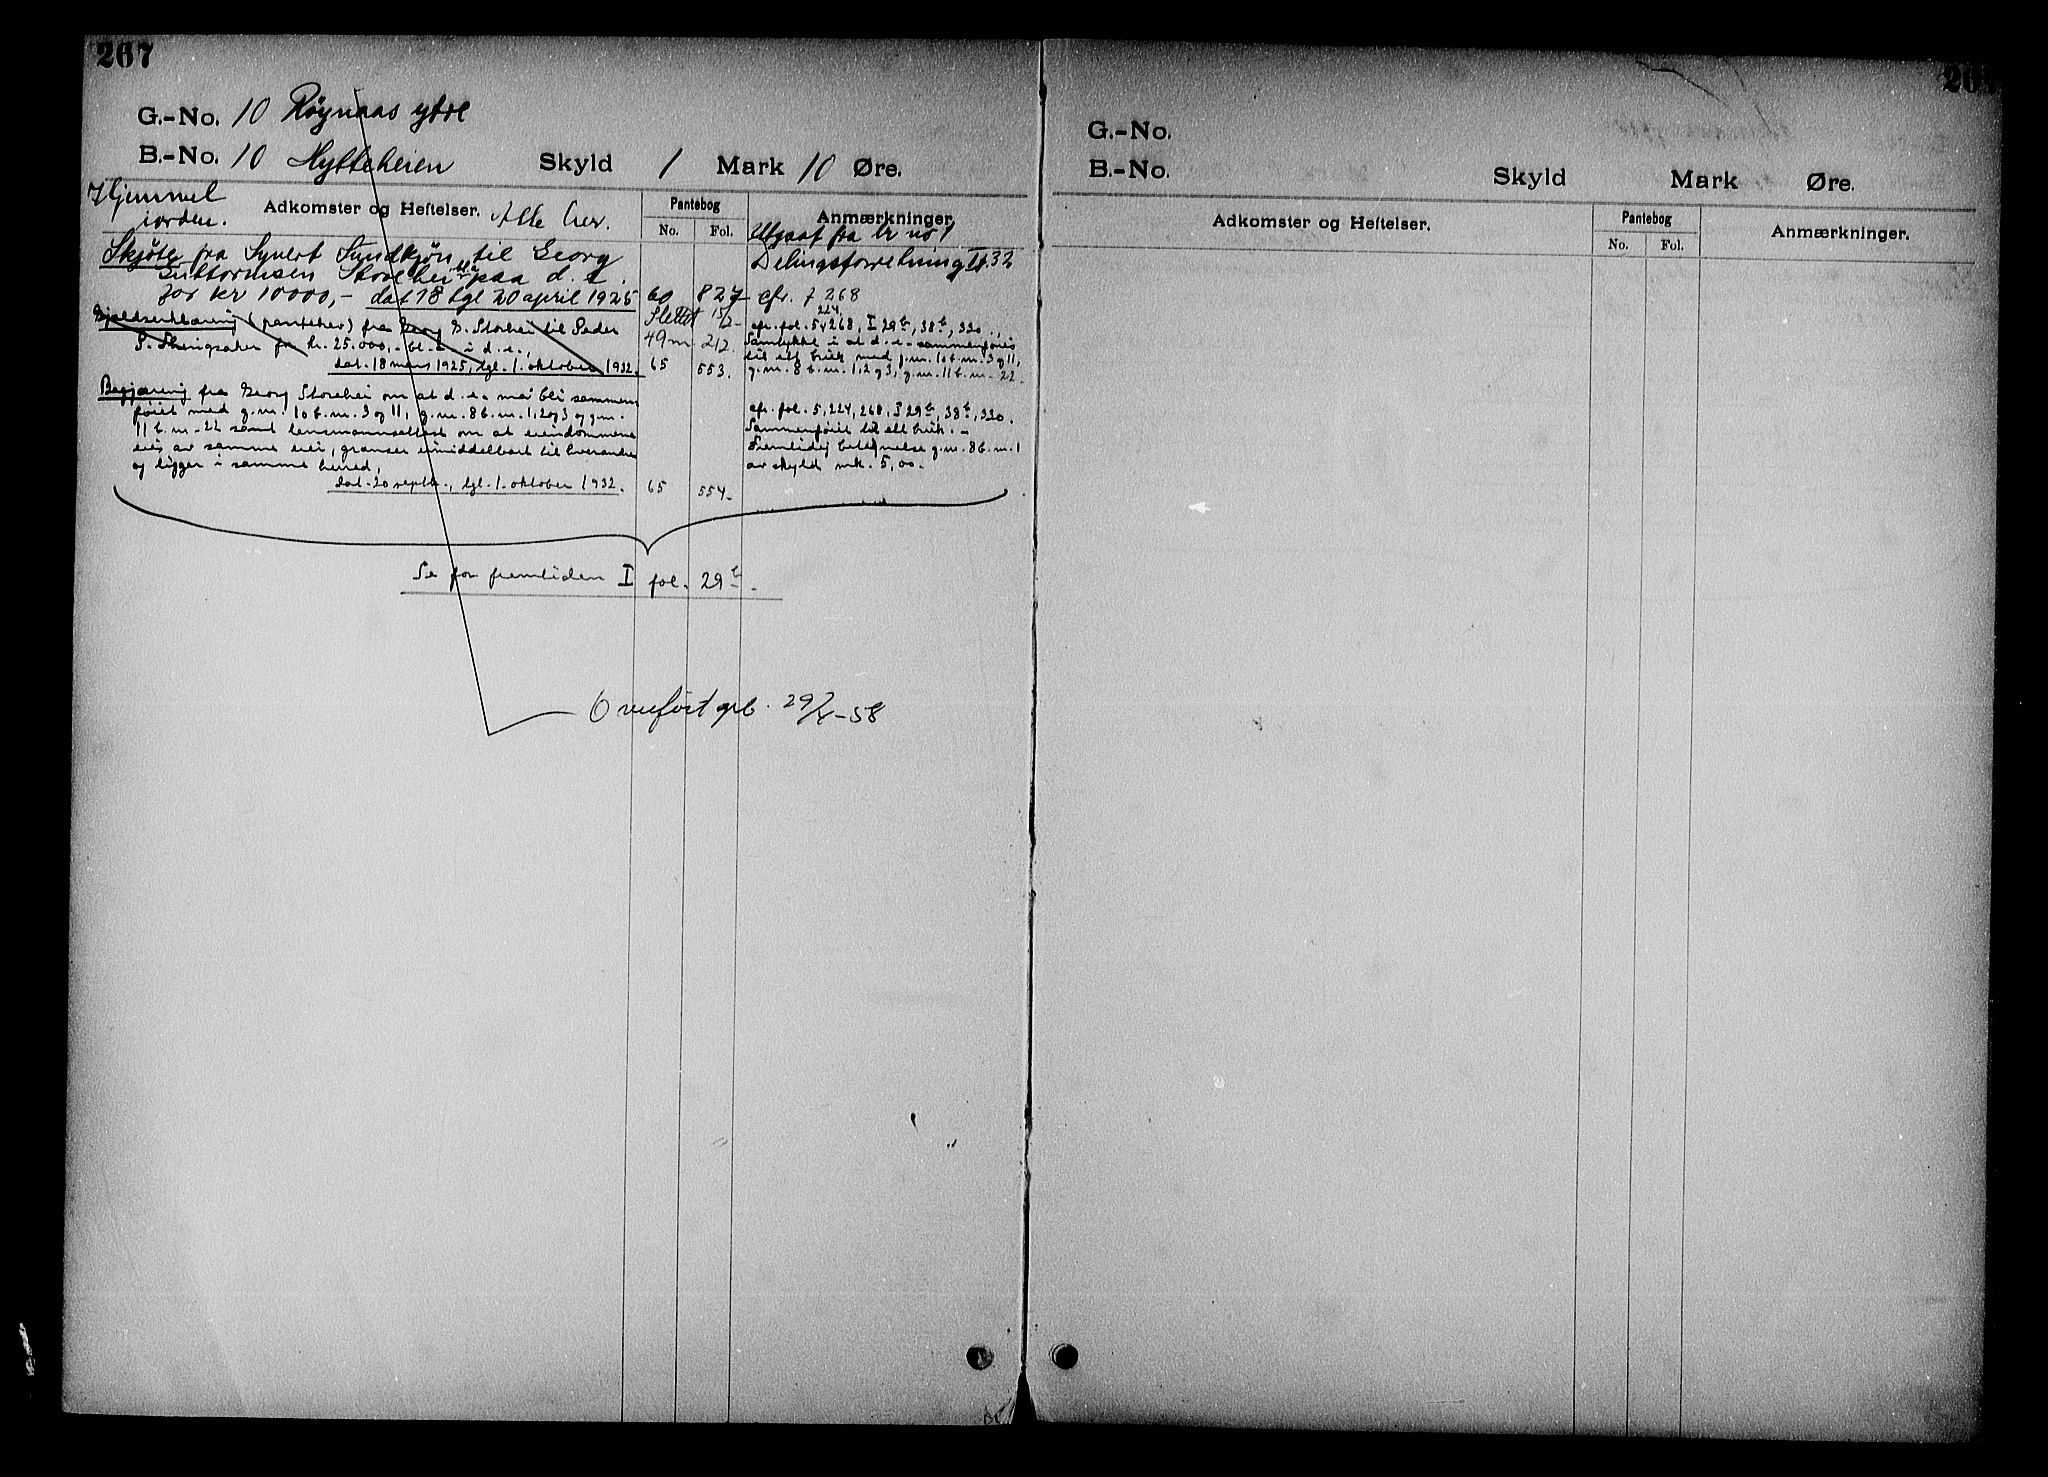 267
G.-No. 10 Røynaas ytre
B.-No. 10 Hytteheien Skyld 1 Mark 10 Øre.
Hjemmel
iorden.
Adkomster og Heftelser.
Pantebog
No. Fol.
Anmærkninger.
Utgaat fra br no 1
Skjøte fra Synert Sundkjøn til Georg
Guttormsen Storehei paa d. e.
for kr 10000,- dat 18 tgl 20 april 1925 60 827
Delingsforretning 32
cfr. f 268
Gjeldserklæring (pantebrev) fra Georg G. Storehei til Peder
P. Skeingsaker for kr. 25.000,- bl. a. i d. e.,
dat. 18 mars 1925, tgl. 1. oktober 1932. 65 553.
Slettet 15/2-
49m 212.
224,
cfr. fol. 5, 268, I 29b, 38b, 320.,
Samtykke i at d. e. sammenføies
til ett bruk med g.nr. 10 b.nr. 3 og 11,
g.nr. 8 b.nr. 1, 2 og 3, g.nr. 11 b.nr. 22.
Begjæring fra Georg Storehei om at d. e. må bli sammen-
føiet med g.nr. 10 b.nr. 3 og 11, g.nr. 8 b.nr. 1, 2 og 3 og g.nr.
11 b.nr. 22 samt lensmannsattest om at eiendommene
eies av samme eier, grenser umiddelbart til hverandre
og ligger i samme herred,
dat. 20 septbr., tgl. 1. oktober 1932. 65 554.
cfr. fol. 5, 224, 268, I 29b, 38b, 320.
Sammenføiet til ett bruk. -
Fremtidig betegnelse g.nr. 8 b.nr. 1
av skyld mk. 5,00.
Se for fremtiden I fol. 29b.
Overført grb. 29/4-58
G.-No.
B.-No. Skyld Mark Øre.
Adkomster og Heftelser.
Pantebog
No. Fol.
Anmærkninger.